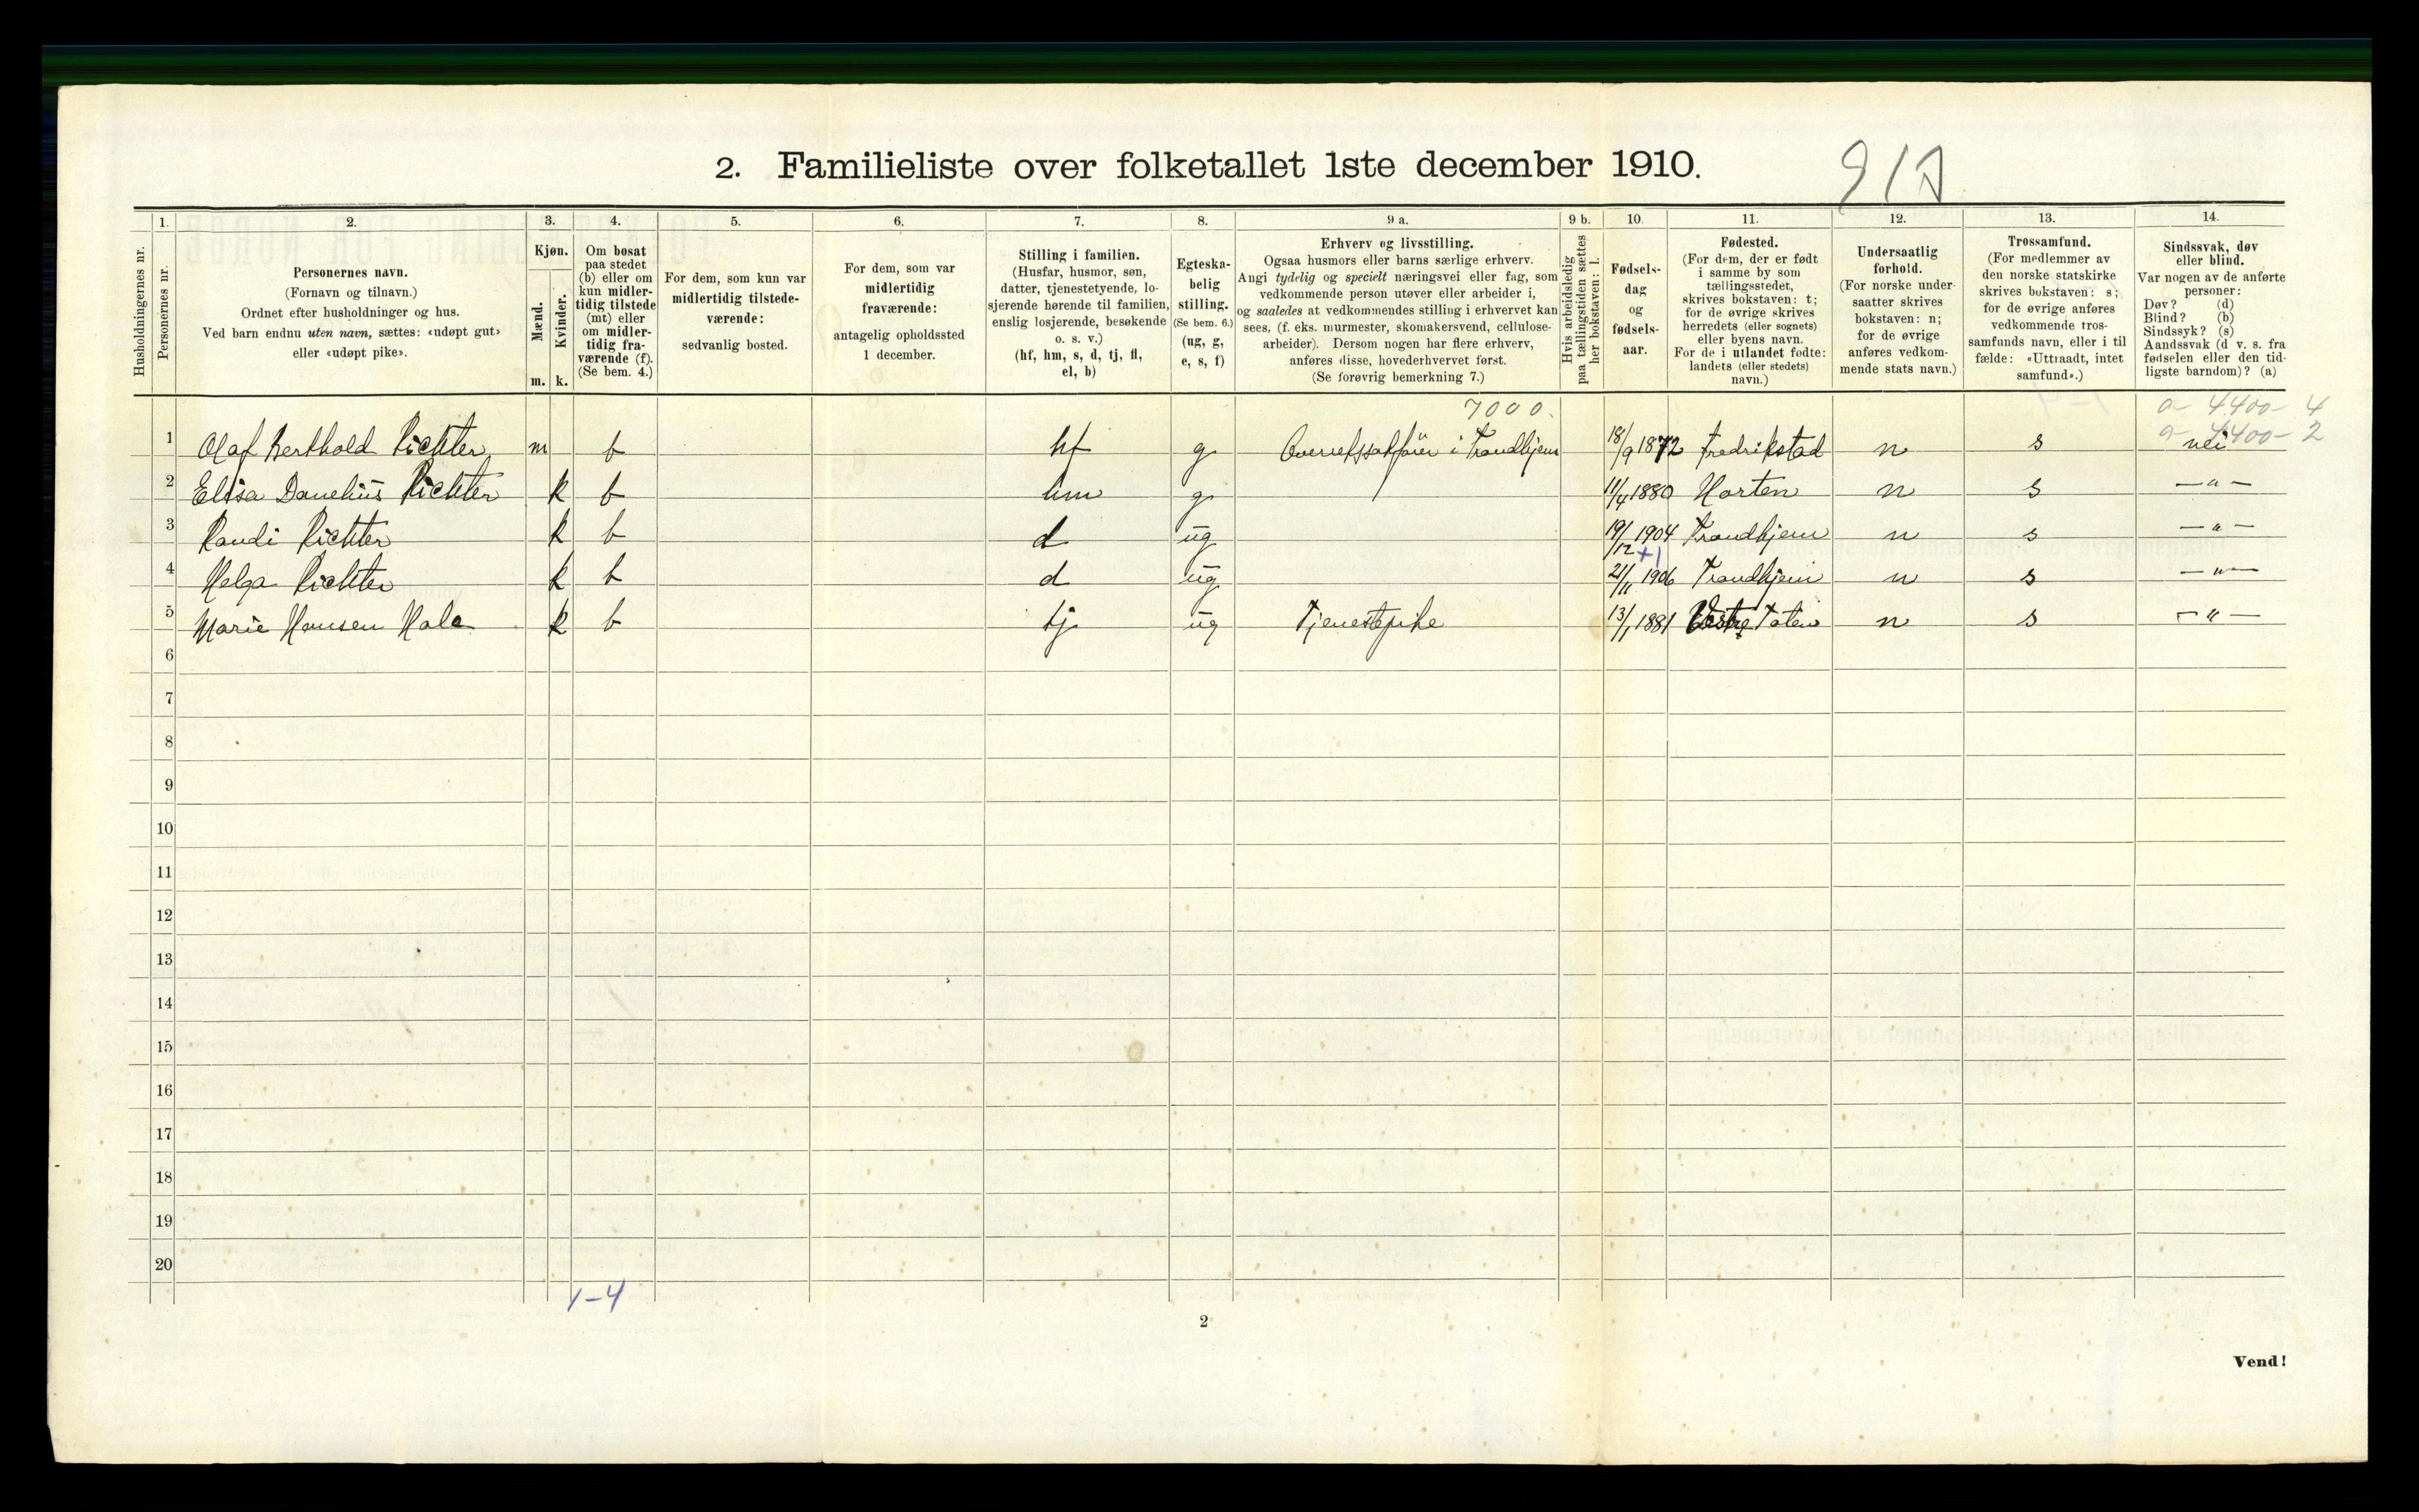 2. Familieliste over folketallet 1ste december 1910.
Husholdningernes nr.
1.
Personernes nr.
2.
Personernes navn.
(Fornavn og tilnavn.)
Ordnet efter husholdninger og hus.
Ved barn endnu uten navn, sættes: «udøpt gut»
eller «udøpt pike».
3.
Kjøn.
Mænd.
Kvinder.
m. k.
4.
Om bosat
paa stedet
(b) eller om
kun midler-
tidig tilstede
(mt) eller
om midler-
tidig fra-
værende (f).
(Se bem. 4.)
5.
For dem, som kun var
midlertidig tilstede-
værende:
sedvanlig bosted.
6.
For dem, som var
midlertidig
fraværende:
antagelig opholdssted
1 december.
7.
Stilling i familien.
(Husfar, husmor, søn,
datter, tjenestetyende, lo-
sjerende hørende til familien,
enslig losjerende, besøkende
o. s. v.)
(hf, hm, s, d, tj, fl,
el, b)
8.
Egteska-
belig
stilling.
(Se bem. 6.)
(ug, g,
e, s, f)
9 a.
Erhverv og livsstilling.
Ogsaa husmors eller barns særlige erhverv.
Angi tydelig og specielt næringsvei eller fag, som
vedkommende person utøver eller arbeider i,
og saaledes at vedkommendes stilling i erhvervet kan
sees, (f. eks. murmester, skomakersvend, cellulose-
arbeider). Dersom nogen har flere erhverv,
anføres disse, hovederhvervet først.
(Se forøvrig bemerkning 7.)
9 b.
Hvis arbeidsledig
paa tællingstiden sættes
her bokstaven: l.
10.
Fødsels-
dag
og
fødsels-
aar.
11.
Fødested.
(For dem, der er født
i samme by som
tællingsstedet,
skrives bokstaven: t;
for de øvrige skrives
herredets (eller sognets)
eller byens navn.
For de i utlandet fødte:
landets (eller stedets)
navn.)
12.
Undersaatlig
forhold.
(For norske under-
saatter skrives
bokstaven: n;
for de øvrige
anføres vedkom-
mende stats navn.)
13.
Trossamfund.
(For medlemmer av
den norske statskirke
skrives bokstaven: s;
for de øvrige anføres
vedkommende tros-
samfunds navn, eller i til
fælde: «Uttraadt, intet
samfund».)
14.
Sindssvak, døv
eller blind.
Var nogen av de anførte
personer:
Døv? (d)
Blind? (b)
Sindssyk? (s)
Aandssvak (d v. s. fra
fødselen eller den tid-
ligste barndom)? (a)
7000.
a- 4400- 4
a- 4400- 2
1 Olaf Berthold Richter m b hf g Overretssakfører i Trondhjem 18/9 1872 Fredrikstad n s nei
2 Elisa Danchius Richter k b hm g 11/4 1880 Horten n s —"—
3 Randi Richter k b d ug 19/12 1904 Trondhjem n s —"—
+1
4 Helga Richter k b d ug 21/11 1906 Trondhjem n s —"—
5 Marie Hansen Hole k b tj ug Tjenestepike 13/1 1881 Vestre Toten n s —"—
6
7
8
9
10
11
12
13
14
15
16
17
18
19
20
1-4
2
Vend!